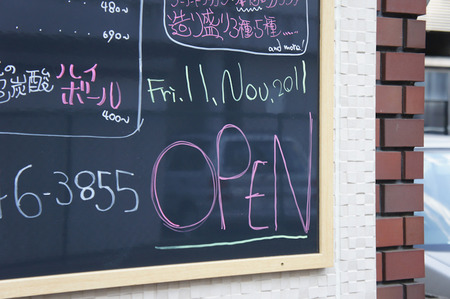 480円
690円
造り盛り3種5種……
and more!
炭酸ハイ
ボール
400円
Fri. 11, Nov, 2011
46-3855
OPEN